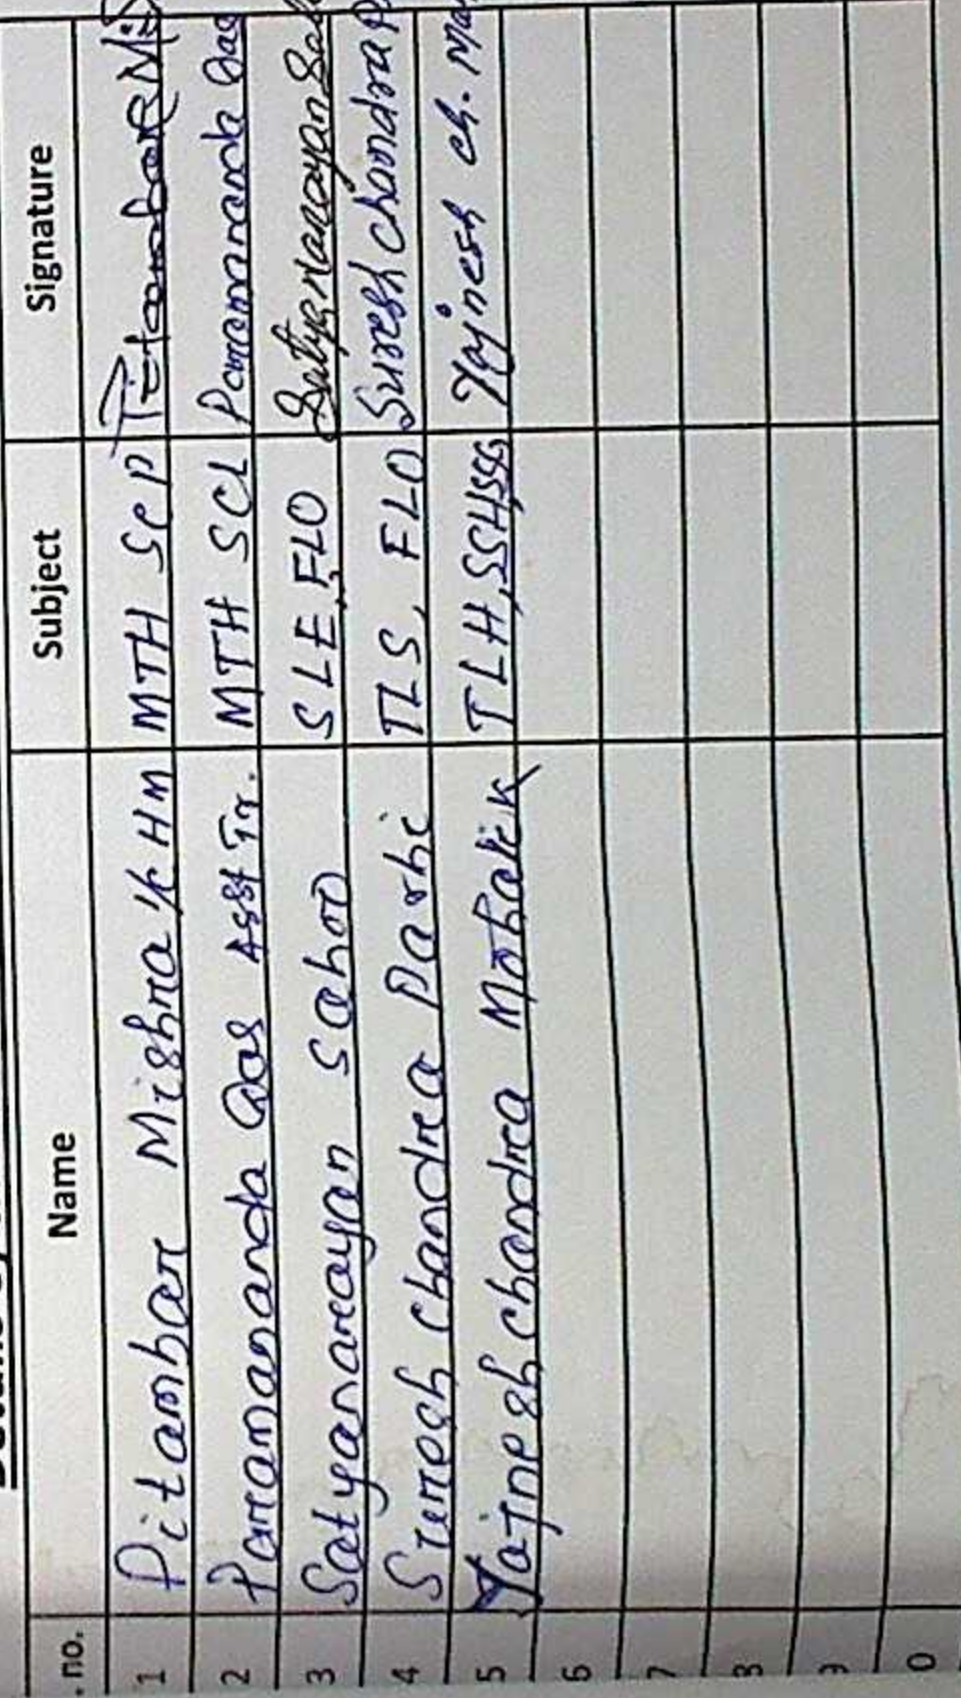 . no. Name Subject Signature
1 Pitambar Mishra I/c HM MTH SCP Pitambar Mis
2 Paramananda Das Asst Tr. MTH SCL Paramananda Das
3 Satyanarayan Sahoo SLE, FLO Satyanarayan Sah
4 Suresh Chandra Parhi TLS, FLO Suresh Chandra P
5 Yajnesh Chandra Mohalik TLH, SSH, SSG Yajnesh Ch. Mo
6
7
8
9
0